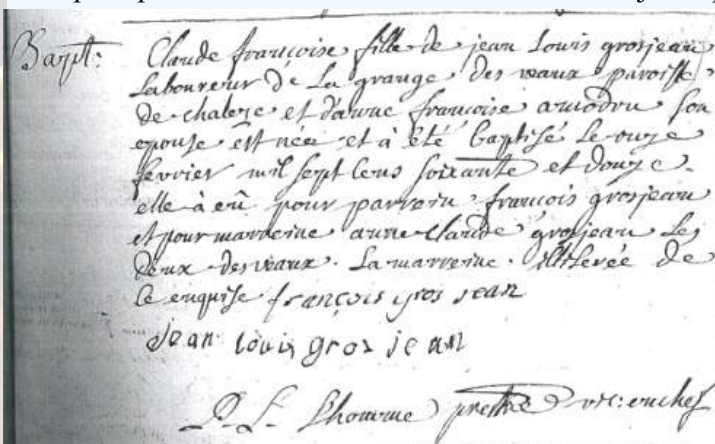 Bapt:
Claude francoise fille de jean Louis grosjean
Laboureur de La grange des vaux paroisse
de chaleze et d'anne francoise amodru son
epouse est née et à été baptisé le onze
fevrier mil sept cens soixante et douze.
elle à eû pour parrein francois grosjean
et pour marreine anne claude grosjean les
deux des vaux. La marreine illiterée de
ce enquise françois gros jean
jean louis gros jean
P. L. Lhomme prestre vic: en chef